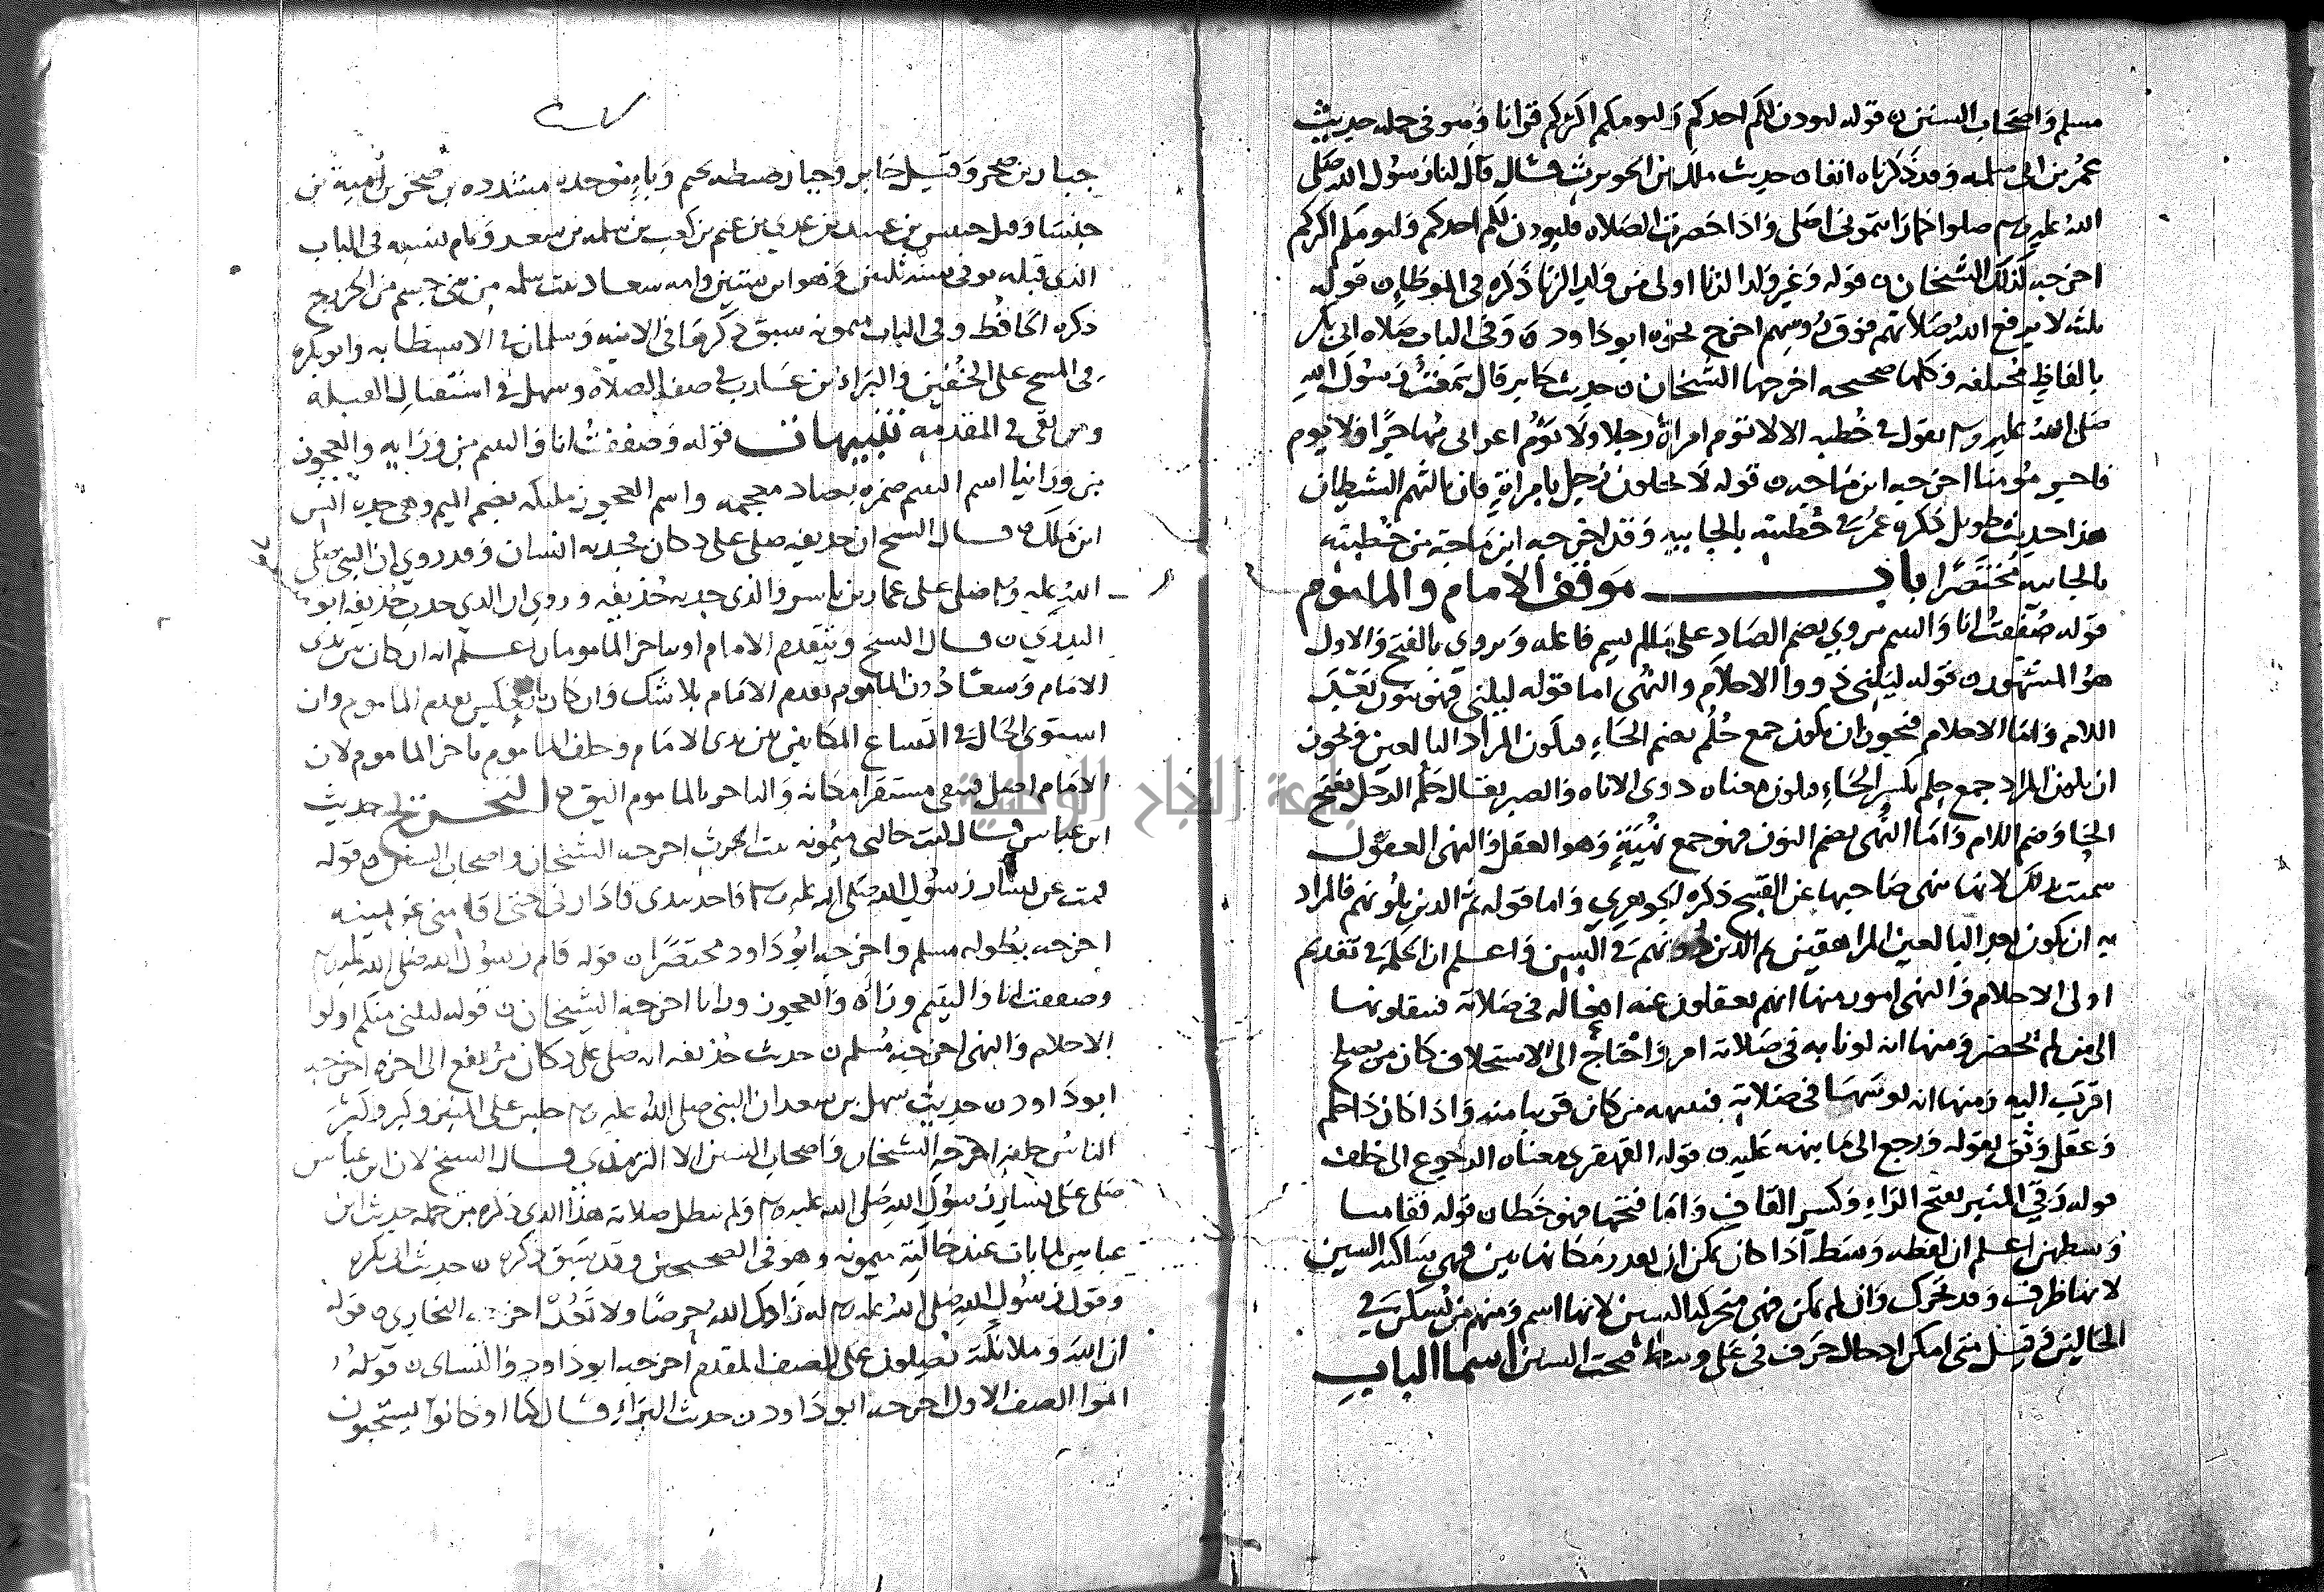 مسلم واصحاب السنن ن قوله ليوذن لكم احدكم وليومكم اكثركم قرانا وهو في جمله حديث
عمر بن ابي سلمه وقد ذكرناه انفا ن حديث ملك بن الحويرث قال قال لنا رسول الله صلى
الله عليه وسلم صلوا كما رايتموني اصلى واذا حضرت الصلاه فليوذن لكم احدكم وليومكم اكبركم
اخرجه كذلك الشيخان ن قوله وغير ولد الزنا اولى من ولد الزنا ذكره في الموطا ن قوله
ثلثه لا يرفع الله صلاتهم فوق روسهم اخرج نحوه ابو داود ن وفي الباب صلاه ابي بكر
بالفاظ مختلفه وكلها صحيحه اخرجها الشيخان ن حديث جابر قال سمعت رسول الله
صلى الله عليه وسلم يقول في خطبه الا لا تؤم امراة رجلا ولا يؤم اعرابي مهاجرا ولا يوم
فاجر مؤمنا اخرجه ابن ماجه ن قوله لا يخلون رجل بامراة فان ثالثهم الشيطان
هذا حديث طويل ذكره عمر في خطبته بالجابيه وقد اخرجه ابن ماجة من خطبته
بالجابيه مختصرا باب موقف الامام والماموم
قوله صففت انا واليتيم يروى بضم الصاد على ما لم يسم فاعله ويروى بالفتح والاول
هو المشهور ن قوله ليلني ذووا الاحلام والنهى اما قوله ليلني فهو بنون بعد
اللام واما الاحلام فيجوز ان يكون جمع حلم بضم الحاء فيكون المراد البالغين ويجوز
ان يكون المراد جمع حلم بكسر الحاء فيكون معناه ذوى الاناه والصبر يقال حلم الرجل بفتح
الحا وضم اللام واما النهى بضم النون فهو جمع نهية وهو العقل والنهى العقول
سميت بذلك لانها تنهى صاحبها عن القبيح ذكره الجوهري واما قوله ثم الذين يلونهم فالمراد
به ان يكون بعد البالغين المراهقين ثم الذين دونهم في السن واعلم ان الحكمة في تقديم
اولى الاحلام والنهى امور منها انهم يعقلون عنه افعاله في صلاته فينقلونها
الى من لم يحضر ومنها انه لو نابه في صلاته امر واحتاج الى الاستخلاف كان من يصلح
اقرب اليه ومنها انه لو سها في صلاته فنبهه من كان قريبا منه واذا كان ذا حلم
وعقل وثق بقوله ورجع الى ما ينبهه عليه ن قوله القهقرى معناه الرجوع الى خلف
قوله رقي المنبر بفتح الراء وكسر القاف واما فتحها فهو خطا ن قوله فقامتا
وسطهن اعلم ان لفظه وسط اذا كان يمكن ان يقدر مكانها بين فهي ساكنه السين
لانها ظرف وقد تحرك وان لم يمكن فهي متحركه السين لانها اسم ومنهم من يسكن في
الحالين وقيل متى امكن ادخال حرف في على وسط فتحت السين اسما الباب
جبار بن صخر وقيل جابر وجبار ضبطه بجيم وباء موحده مشدده بن صخر بن امية بن
خنسا وقيل خنيس بن عبيد بن عدي بن غنم بن كعب بن سلمه بن سعد وتمام نسبه في الباب
الذي قبله توفي سنه ثلثين وهو ابن ستين وامه سعاد بنت سلمه من بني جسم من الخزرج
ذكره الحافظ وفي الباب ميمونه سبق ذكرها في الانيه وسلمان في الاستطابه وابو بكره
في المسح على الخفين والبراء بن عازب في صفه الصلاة وسهل في استقبال القبله
ومن بقى في المقدمه تنبيهان قوله وصففت انا واليتيم من ورايه والعجوز
من ورائنا اسم اليتيم ضمره بضاد معجمه واسم العجوز مليكه بضم الميم وهي جده انس
ابن ملك ن قال الشيخ ان حذيفه صلى على دكان فجذبه انسان وقد روي ان النبي صلى
الله عليه وسلم صلى على عمار بن ياسر والذي جذبه حذيفه وروي ان الذي جذب حذيفه ابو
البدري ن قال الشيخ ويتقدم الامام او يتاخر المامومان اعلم انه ان كان بين يدى
الامام وسعا دون الماموم تقدم الامام بلا شك وان كان بالعكس تقدم الماموم وان
استوى الحال في اتساع المكانين بين يدى الامام وخلف الماموم تاخر الماموم لان
الامام اصل فيبقى مستقرا مكانه والتاخر بالماموم اليق ن التخريج حديث
ابن عباس قال بت عند خالتى ميمونه بنت الحرث اخرجه الشيخان واصحاب السنن ن قوله
قمت عن يسار رسول الله صلى الله عليه وسلم فاخذ بيدى فادارني حتى اقامني عن يمينه
اخرجه بطوله مسلم واخرجه ابو داود مختصرا ن قوله قام رسول الله صلى الله عليه وسلم
وصففت انا واليتيم وراه والعجوز ورانا اخرجه الشيخان ن قوله ليلنى منكم اولوا
الاحلام والنهى اخرجه مسلم ن حديث حذيفه انه صلى على دكان مرتفع الى اخره اخرجه
ابو داود ن حديث سهل بن سعد ان النبي صلى الله عليه وسلم جلس على المنبر وكبر وكبر
الناس خلفه اخرجه الشيخان واصحاب السنن الا الترمذي قال الشيخ لان ابن عباس
صلى على يسار رسول الله صلى الله عليه وسلم ولم تبطل صلاته هذا الذي ذكره من جمله حديث ابن
عباس لما بات عند خالته ميمونه وهو في الصحيحين وقد سبق ذكره ن حديث ابي بكره
وقول رسول الله صلى الله عليه وسلم له زادك الله حرصا ولا تعد اخرجه البخاري ن قوله
ان الله وملائكته يصلون على الصف المقدم اخرجه ابو داود والنساى ن قوله
اتموا الصف الاول اخرجه ابو داود ن حديث البراء قال كنا او كانوا يستحبون
جامعة النجاح الوطنية